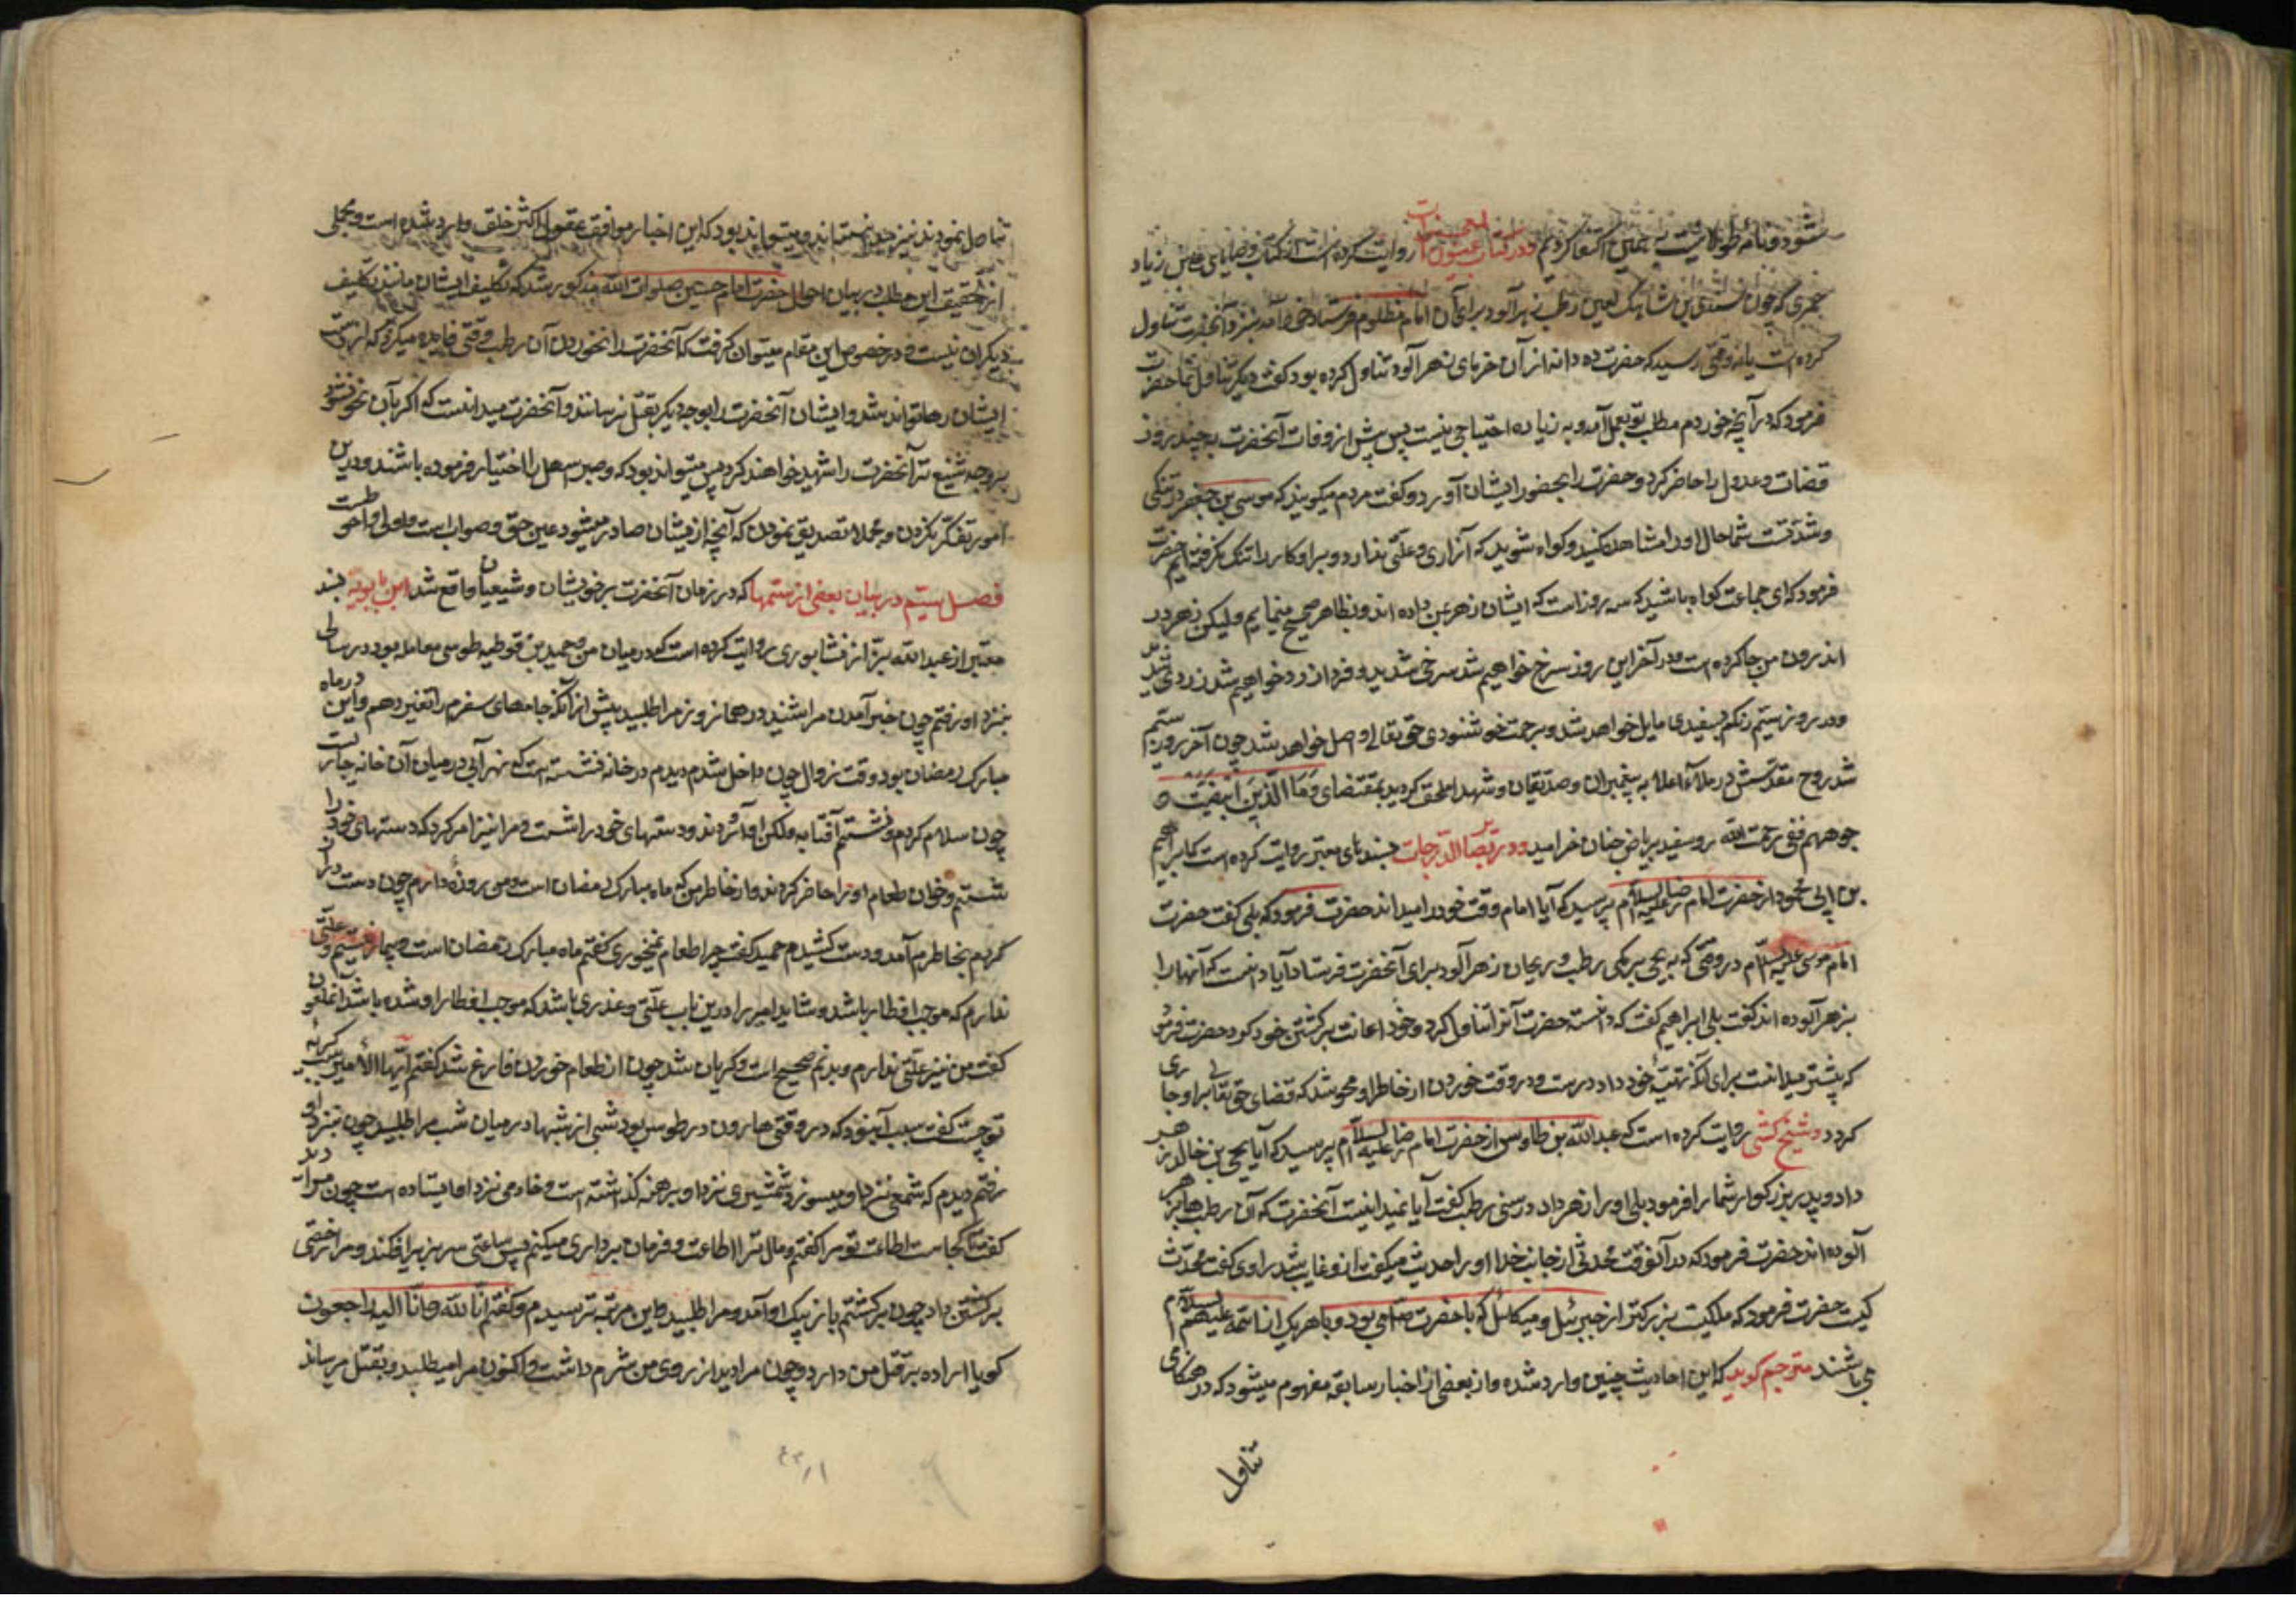 شود و نامه طولانیست به همین اکتفا کردیم و در کتاب عیون المعجزات روایت کرده است از کتاب وصایای علی بن زیاد
ضمیری که چون سندی بن شاهک لعین رطب زهرآلود برای آن امام مظلوم فرستاد خود آمد بنزد آنحضرت تناول
کرده است یا نه وقتی رسید که حضرت ده دانه از آن خرمای زهرآلود تناول کرده بود گفت دیگر تناول نما حضرت
فرمود که در آنچه خوردم مطلب تو بعمل آمد و به زیاده احتیاجی نیست پس پیش از وفات آنحضرت به چند روز
قضات و عدول را حاضر کرد و حضرت را بحضور ایشان آورد و گفت مردم میگویند که موسی بن جعفر در تنگی
و شدتست شما حال او را مشاهده کنید و گواه شوید که آزاری و علتی ندارد و بر او کار را تنگ نگرفته‌ایم حضرت
فرمود که ای جماعت گواه باشید که سه روز است که ایشان زهر بمن داده‌اند و بظاهر صحیح مینمایم و لیکن زهر در
اندرون من جا کرده است و در آخر این روز سرخ خواهم شد سرخی شدید و فردا زرد خواهم شد زردی شدید
و در روز سیم رنگم بسفیدی مایل خواهد شد و برحمت و خوشنودی حق تعالی واصل خواهم شد چون آخر روز سیم
شد روح مقدسش در ملاء اعلا به پیغمبران و صدیقان و شهدا ملحق گردید بمقتضای و اما الذین ابیضت و
جوههم ففی رحمت الله رو سفید بریاض جنان خرامید و در بصایر الدرجات بسندهای معتبر روایت کرده است که ابراهیم
بن ابی محمود از حضرت امام رضا علیه السلام پرسید که آیا امام وقت خود را میداند حضرت فرمود که بلی گفت حضرت
امام موسی علیه السلام در وقتی که یحیی برمکی رطب و ریحان زهرآلود برای آنحضرت فرستاد آیا دانست که آنها را
بزهر آلوده‌اند گفت بلی ابراهیم گفت که دانسته حضرت آنرا تناول کرد و خود اعانت بر کشتن خود کرد حضرت فرمود
که پیشتر میدانست برای آنکه تهیهٔ خود داد درست و در وقت خوردن از خاطر او محو شد که قضای حق تعالی بر او جاری
گردد و شیخ کشی روایت کرده است که عبدالله بن طاوس از حضرت امام رضا علیه السلام پرسید که آیا یحیی بن خالد زهر
داد پدر بزرگوار شما را فرمود بلی او را زهر داد در سی رطب گفت آیا نمیدانست آنحضرت که آن رطب‌ها را بزهر
آلوده‌اند حضرت فرمود که در آنوقت محدثی از جانب خدا او را حدیث میگفت از او غایب شد راوی گفت محدث
کیست حضرت فرمود که ملکیست بزرگتر از جبرئیل و میکائیل که با حضرت ص می‌بود و با هر یک از ائمه علیهم السلام
می‌باشند مترجم گوید که این احادیث چنین وارد شده و از بعضی از اخبار سابقه مفهوم میشود که در هنگامی
تناول
تناول نمودند نیز میدانستند و میتواند بود که این اخبار موافق عقول اکثر خلق وارد شده است و مجملی
از تحقیق این مطلب در بیان احوال حضرت امام حسین صلوات الله مذکور شد که تکلیف ایشان مانند تکلیف
دیگران نیست و در خصوص این مقام میتوان گفت که آنحضرت را نخوردن آن رطب وقتی فایده میکرد که از دست
ایشان رها تواند شد و ایشان آنحضرت را بوجه دیگر بقتل نرسانند و آنحضرت میدانست که اگر بآن نحو نشود
بروجه شنیع‌تر آنحضرت را شهید خواهند کرد پس میتواند بود که وجه سهل را اختیار فرموده باشند و در این
امور تفکر نکردن و مجملا تصدیق نمودن که آنچه از ایشان صادر میشود عین حق و صوابست اولی و احوطست
فصل سیم در بیان بعضی از ستمها که در زمان آنحضرت بر خویشان و شیعیان واقع شد ابن بابویه بسند
معتبر از عبدالله بزاز نیشابوری روایت کرده است که در میان من و حمید بن قحطبه طوسی معامله بود در سالی
بنزد او رفتم چون خبر آمدن مرا شنید در همان روز مرا طلبید پیش از آنکه جامهای سفر را تغییر دهم و این در ماه
مبارک رمضان بود وقت زوال چون داخل شدم دیدم در خانه نشسته است که نهر آبی در میان آن خانه جاریست
چون سلام کردم و نشستم آفتابه و لگن آوردند و دستهای خود را شست و مرا نیز امر کرد که دستهای خود را
شستم و خوان طعام او را حاضر کردند و از خاطرم رفت که ماه مبارک رمضان است و من روزه دارم چون دست دراز
کردم بخاطرم آمد و دست کشیدم حمید گفت چرا طعام نمیخوری گفتم ماه مبارک رمضان است و بیمار نیستم و علتی
ندارم که موجب افطار باشد و شاید امیر را در این باب علتی و عذری باشد که موجب افطار او شده باشد آن ملعون
گفت من نیز علتی ندارم و بدنم صحیح است و گریان شد چون از طعام خوردن فارغ شد گفتم ایها الامیر سبب گریه
تو چیست گفت سبب آن بود که در وقتی هارون در طوس بود شبی از شبها در میان شب مرا طلبید چون بنزد او
رفتم دیدم که شمعی نزد او میسوزد و شمشیری نزد او برهنه گذاشته است و خادمی نزد او ایستاده است چون مرا دید
گفت چگونه است اطاعت تو مرا گفتم بجان و مال ترا اطاعت و فرمان برداری میکنم پس ساعتی سر بزیر افکند و مرا رخصت
برگشتن داد چون برگشتم باز پیک او آمد و مرا طلبید و این مرتبه ترسیدم و گفتم انا لله و انا الیه راجعون
گویا اراده قتل من دارد و چون مرا دید از روی من شرم داشت و اکنون مرا میطلبد و بقتل میرساند